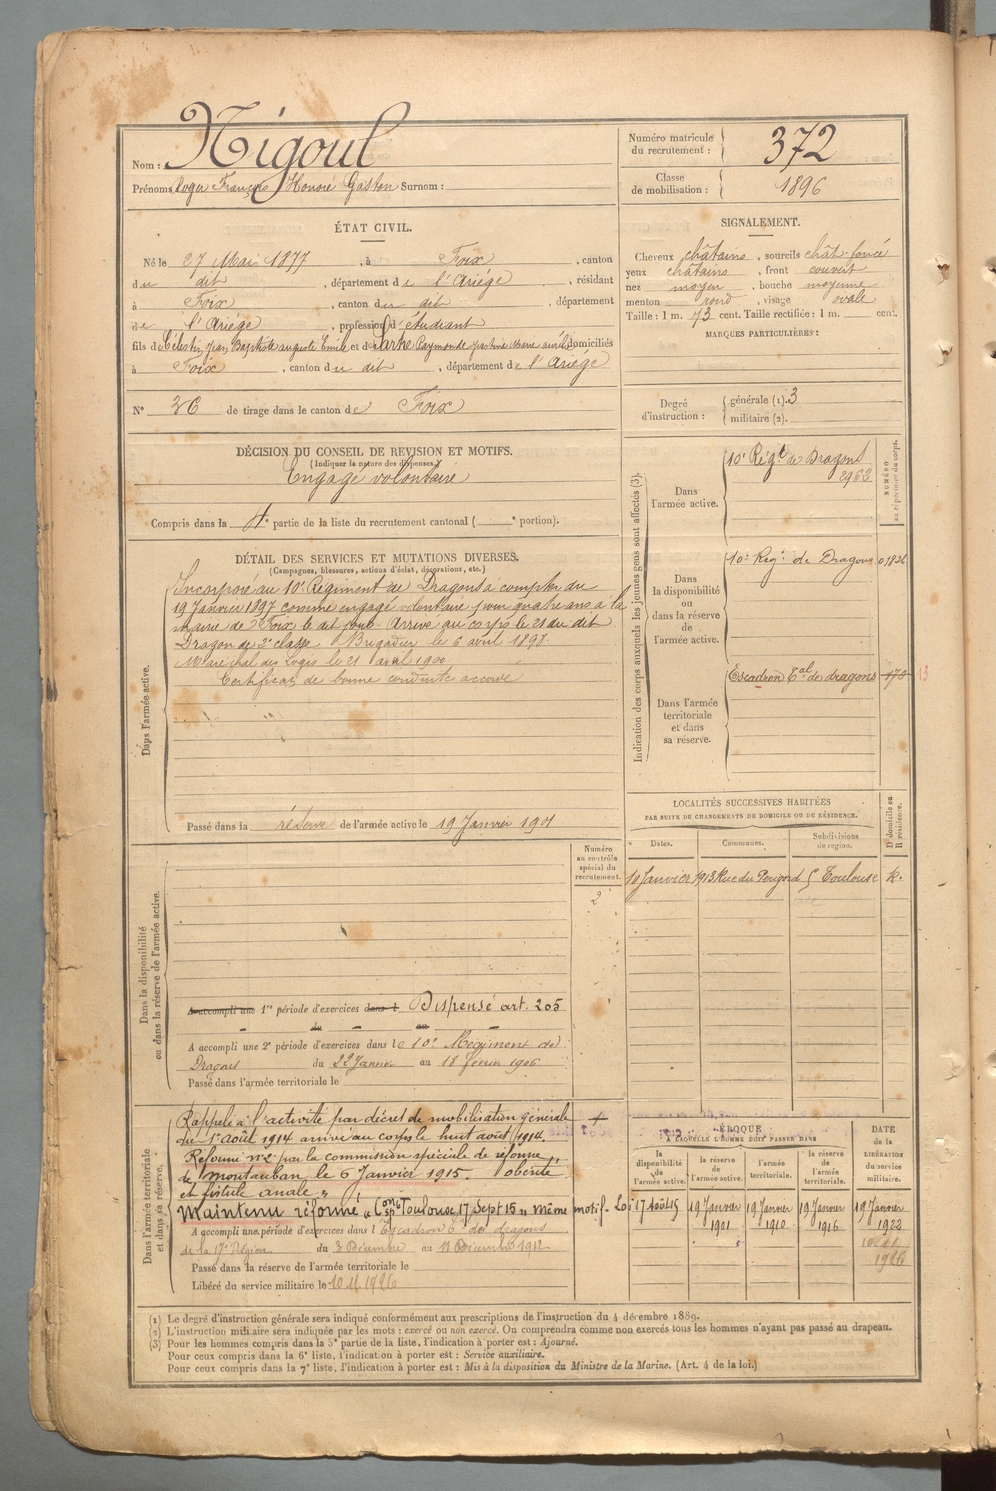 Nom : Nigoul
Prénoms Roger François Honoré Gaston Surnom :
Numéro matricule du recrutement : 372
Classe de mobilisation : 1896
ÉTAT CIVIL.
Né le 27 Mai 1877, à Foix, canton
du dit, département de l'Ariége, résidant
à Foix, canton du dit, département
de l'Ariége, profession d'étudiant
fils de Célestin Jean Baptiste auguste Emile et de Marie domiciliés
à Foix, canton du dit, département de l'Ariége
N° 36 de tirage dans le canton de Foix
SIGNALEMENT.
Cheveux châtains, sourcils chât. foncé
yeux châtains, front couvert
nez moyen, bouche moyenne
menton rond, visage ovale
Taille : 1 m. 73 cent. Taille rectifiée : 1 m. cent.
MARQUES PARTICULIÈRES :
Degré d'instruction : générale (1). 3
militaire (2).
DÉCISION DU CONSEIL DE REVISION ET MOTIFS.
(Indiquer la nature des dispenses.)
Engagé volontaire
Compris dans la 4e partie de la liste du recrutement cantonal ( e portion).
DÉTAIL DES SERVICES ET MUTATIONS DIVERSES.
(Campagnes, blessures, actions d'éclat, décorations, etc.)
Dans l'armée active.
Incorporé au 10e Régiment de Dragons à compter du
19 Janvier 1897 comme engagé volontaire pour quatre ans à la
mairie de Foix le dit jour. Arrivé au corps le 21 du dit
Dragon de 2e classe Brigadier le 6 avril 1898
Maréchal des Logis le 21 avril 1900
Certificat de bonne conduite accordé
Passé dans la réserve de l'armée active le 19 Janvier 1901
Indication des corps auxquels les jeunes gens sont affectés (3).
NUMÉRO au répertoire du corps.
Dans l'armée active.
10e Régt de Dragons
2963
Dans la disponibilité ou dans la réserve de l'armée active.
10e Régt de Dragons 01826
Dans l'armée territoriale et dans sa réserve.
Escadron Tal de dragons 178 13
LOCALITÉS SUCCESSIVES HABITÉES
PAR SUITE DE CHANGEMENTS DE DOMICILE OU DE RÉSIDENCE.
Dates. Communes. Subdivisions de région. D domicile ou R résidence.
10 Janvier 1913 Rue du Perigord 5 Toulouse R.
Numéro au contrôle spécial du recrutement.
2
Dans la disponibilité ou dans la réserve de l'armée active.
A accompli une 1re période d'exercices dans l Dispensé art. 205
du au
A accompli une 2e période d'exercices dans le 10e Régiment de
Dragons du 22 Janvier au 18 février 1906
Passé dans l'armée territoriale le
Dans l'armée territoriale et dans sa réserve.
Rappelé à l'activité par décret de mobilisation générale
du 1er août 1914 arrivé au corps le huit août 1914.
Réformé n°2 par la commission spéciale de réforme
de Montauban le 6 Janvier 1915. obésité
et fistule anale "
Maintenu réformé " Con Sp T Toulouse 17 Sept 15 " même motif - Loi 17 Août 15
A accompli une période d'exercices dans l'Escadron Tal de dragons
de la 17e Région du 3 Décembre au 11 Décembre 1912
Passé dans la réserve de l'armée territoriale le
Libéré du service militaire le 10 11 1926
ÉPOQUE
A LAQUELLE L'HOMME DOIT PASSER DANS
la disponibilité de l'armée active.
la réserve de l'armée active. 19 Janvier 1901
l'armée territoriale. 19 Janvier 1910
la réserve de l'armée territoriale. 19 Janvier 1916
DATE de la LIBÉRATION du service militaire.
19 Janvier 1922
1926
(1) Le degré d'instruction générale sera indiqué conformément aux prescriptions de l'instruction du 4 décembre 1889.
(2) L'instruction militaire sera indiquée par les mots : exercé ou non exercé. On comprendra comme non exercés tous les hommes n'ayant pas passé au drapeau.
(3) Pour les hommes compris dans la 5e partie de la liste, l'indication à porter est : Ajourné.
Pour ceux compris dans la 6e liste, l'indication à porter est : Service auxiliaire.
Pour ceux compris dans la 7e liste, l'indication à porter est : Mis à la disposition du Ministre de la Marine. (Art. 4 de la loi.)